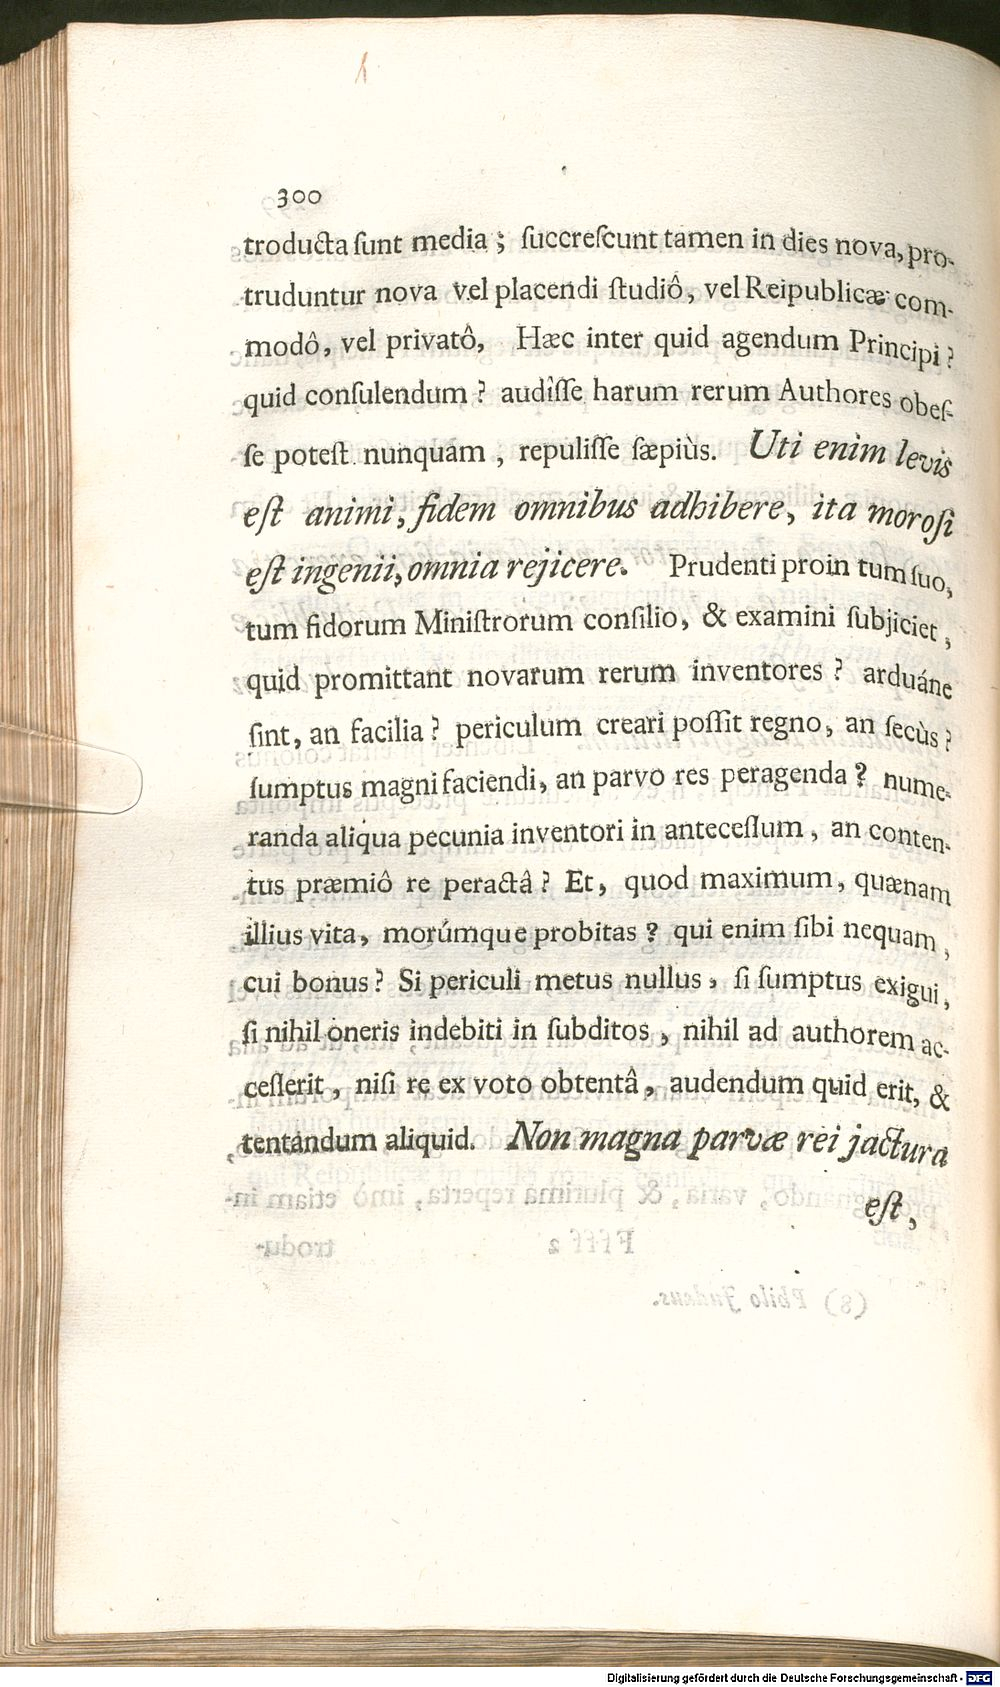 300
troducta ſunt media; ſuccreſcunt tamen in dies nova, pro-
truduntur nova vel placendi ſtudiô, vel Reipublicæ com-
modô, vel privatô, Hæc inter quid agendum Principi?
quid conſulendum? audîſſe harum rerum Authores obeſ-
ſe poteſt nunquam, repuliſſe ſæpiùs. Uti enim levis
eſt animi, fidem omnibus adhibere, ita moroſi
eſt ingenii, omnia rejicere. Prudenti proin tum ſuo,
tum fidorum Miniſtrorum conſilio, & examini ſubjiciet,
quid promittant novarum rerum inventores? arduáne
ſint, an facilia? periculum creari poſſit regno, an ſecùs?
ſumptus magni faciendi, an parvo res peragenda? nume-
randa aliqua pecunia inventori in anteceſſum, an conten-
tus præmiô re peractâ? Et, quod maximum, quænam
illius vita, morúmque probitas? qui enim ſibi nequam,
cui bonus? Si periculi metus nullus, ſi ſumptus exigui,
ſi nihil oneris indebiti in ſubditos, nihil ad authorem ac-
ceſſerit, niſi re ex voto obtentâ, audendum quid erit, &
tentandum aliquid. Non magna parvæ rei jactura
eſt,
Digitalisierung gefördert durch die Deutsche Forschungsgemeinschaft - DFG